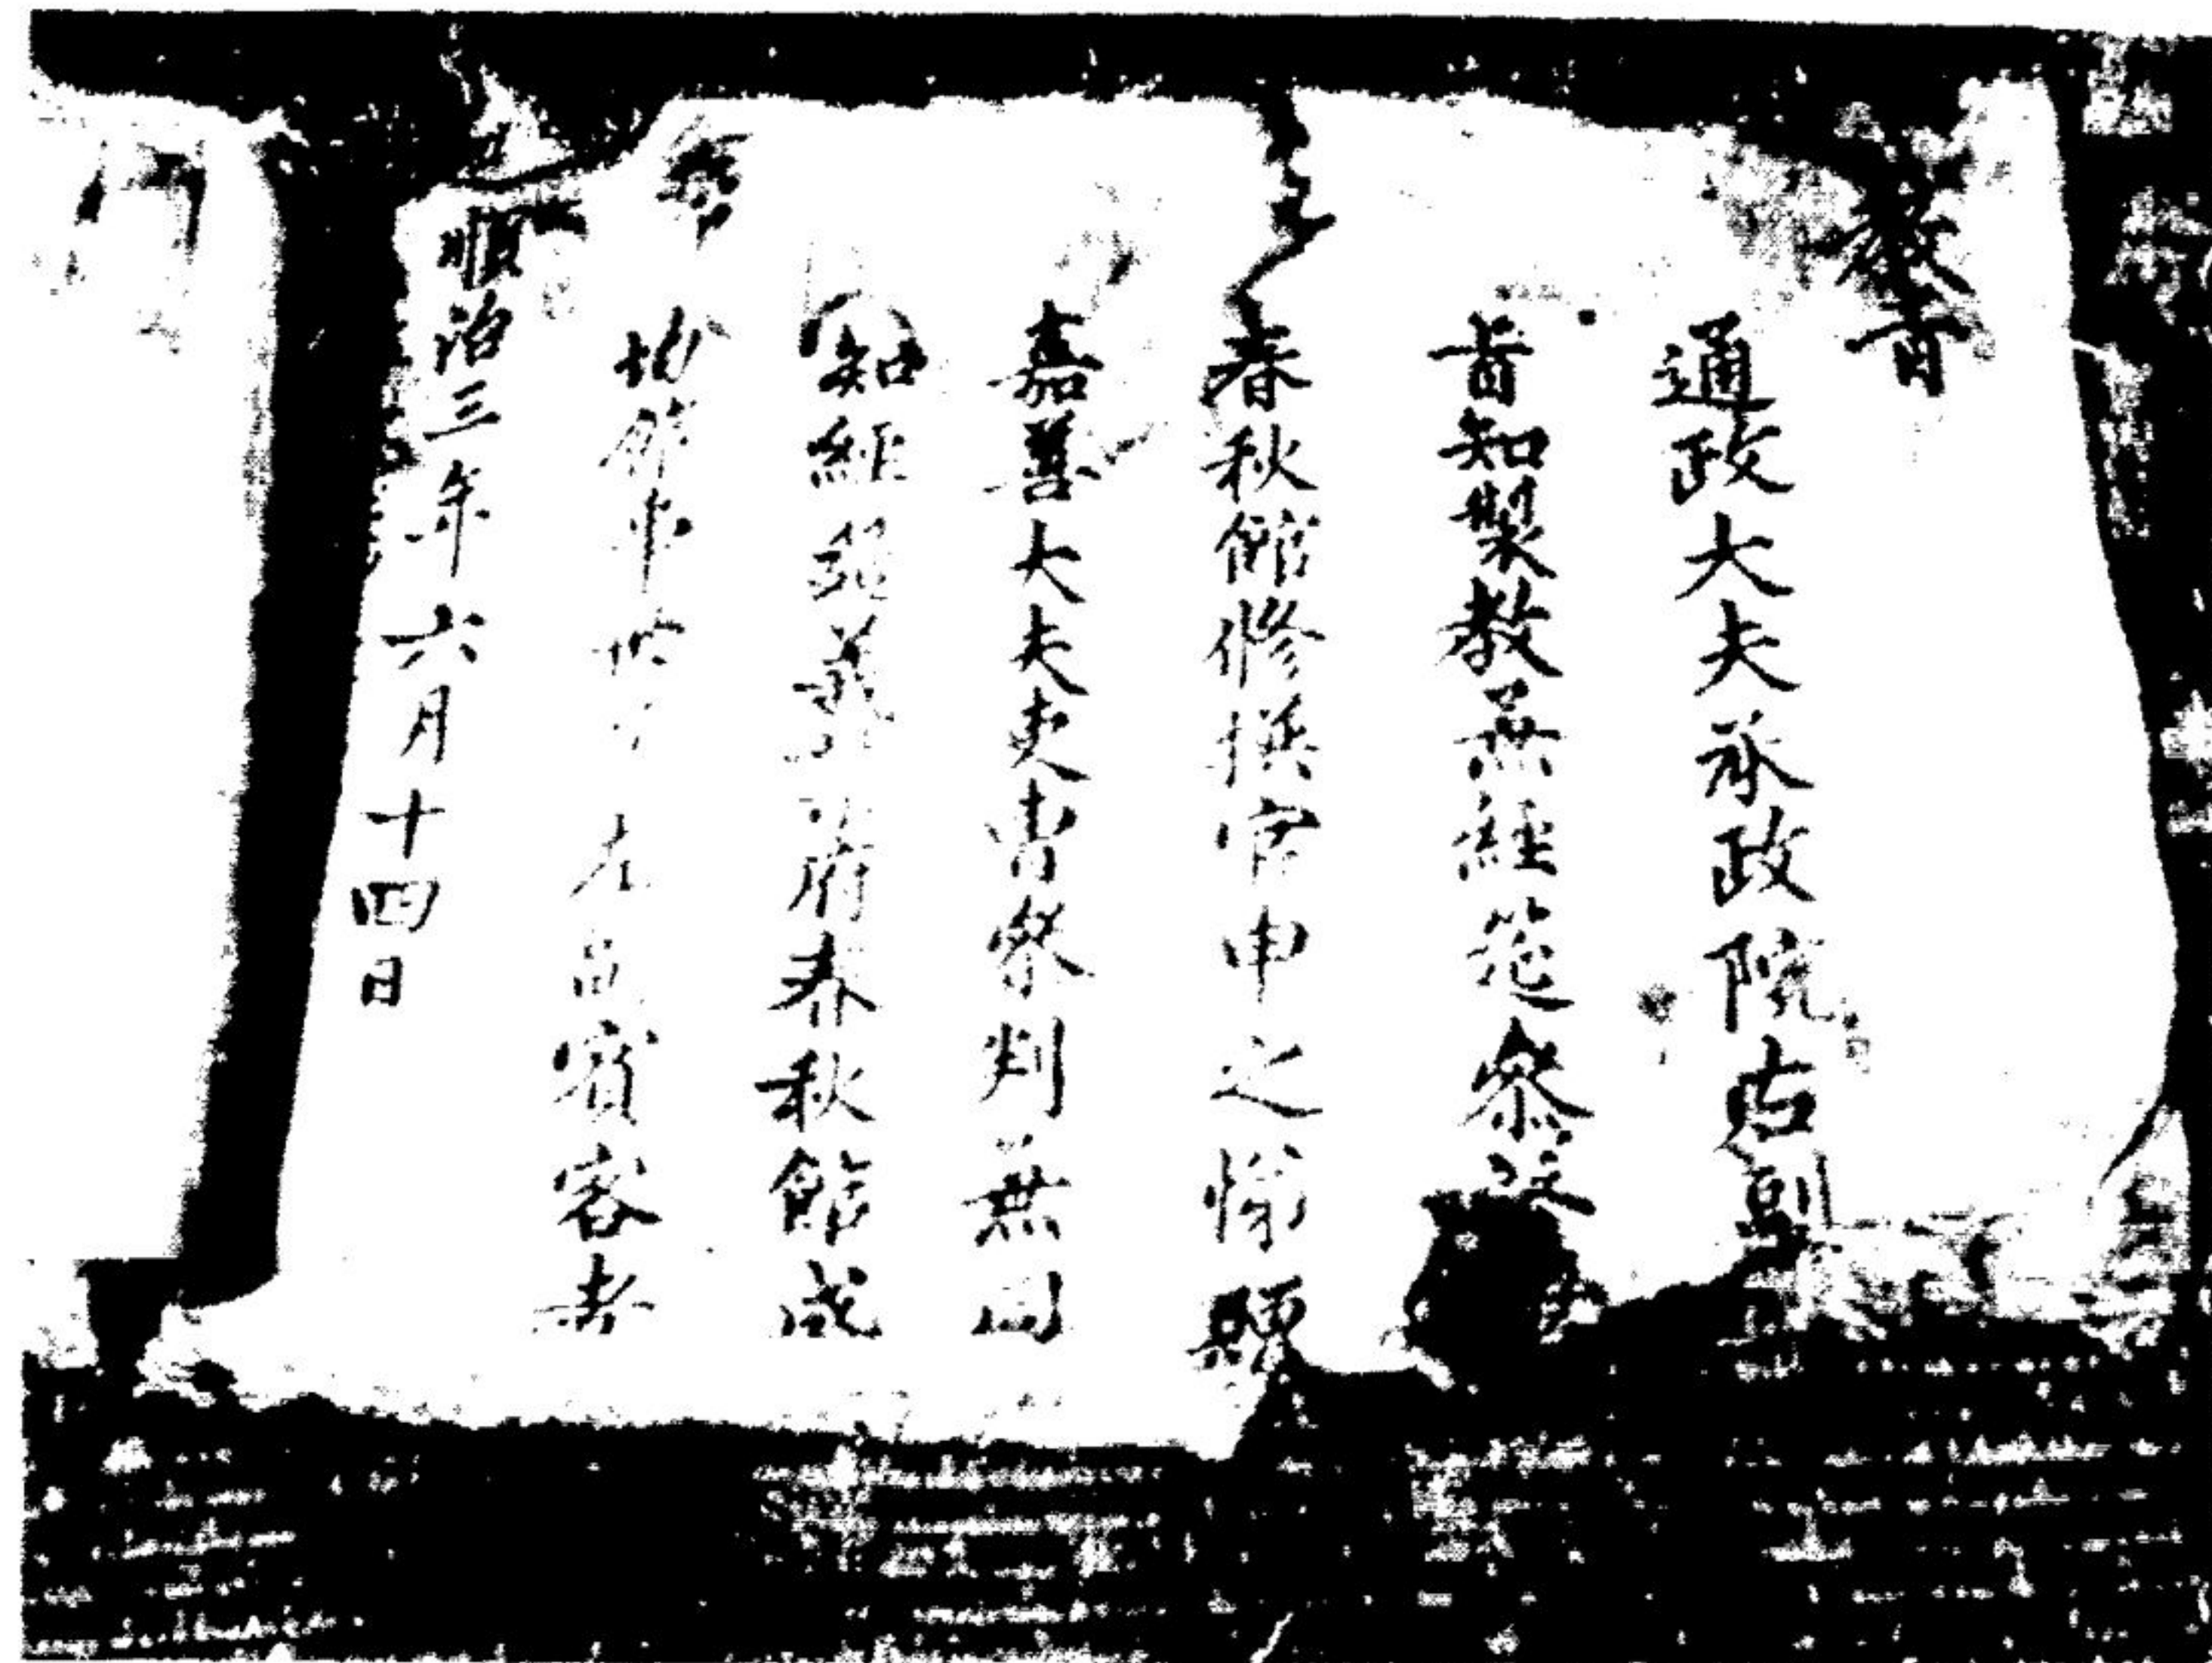 教旨
通政大夫承政院右副
旨知製教兼經筵參
春秋館修撰官申之悌贈
嘉善大夫吏曹參判兼同
知經筵義府春秋館成
均館事世左賓客者
順治三年六月十四日